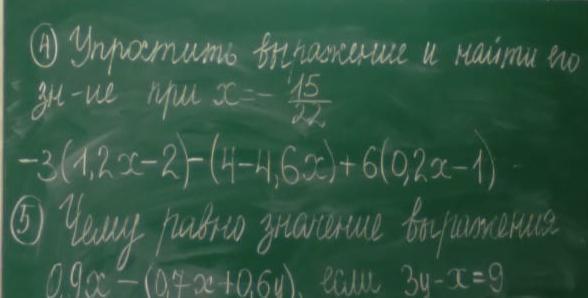 ④ Упростить выражение и найти его
зн-ие при x = - 15/22
-3(1,2x-2)-(4-4,6x)+6(0,2x-1)
⑤ Чему равно значение выражения
0,9x-(0,7x+0,6y), если 3y-x=9